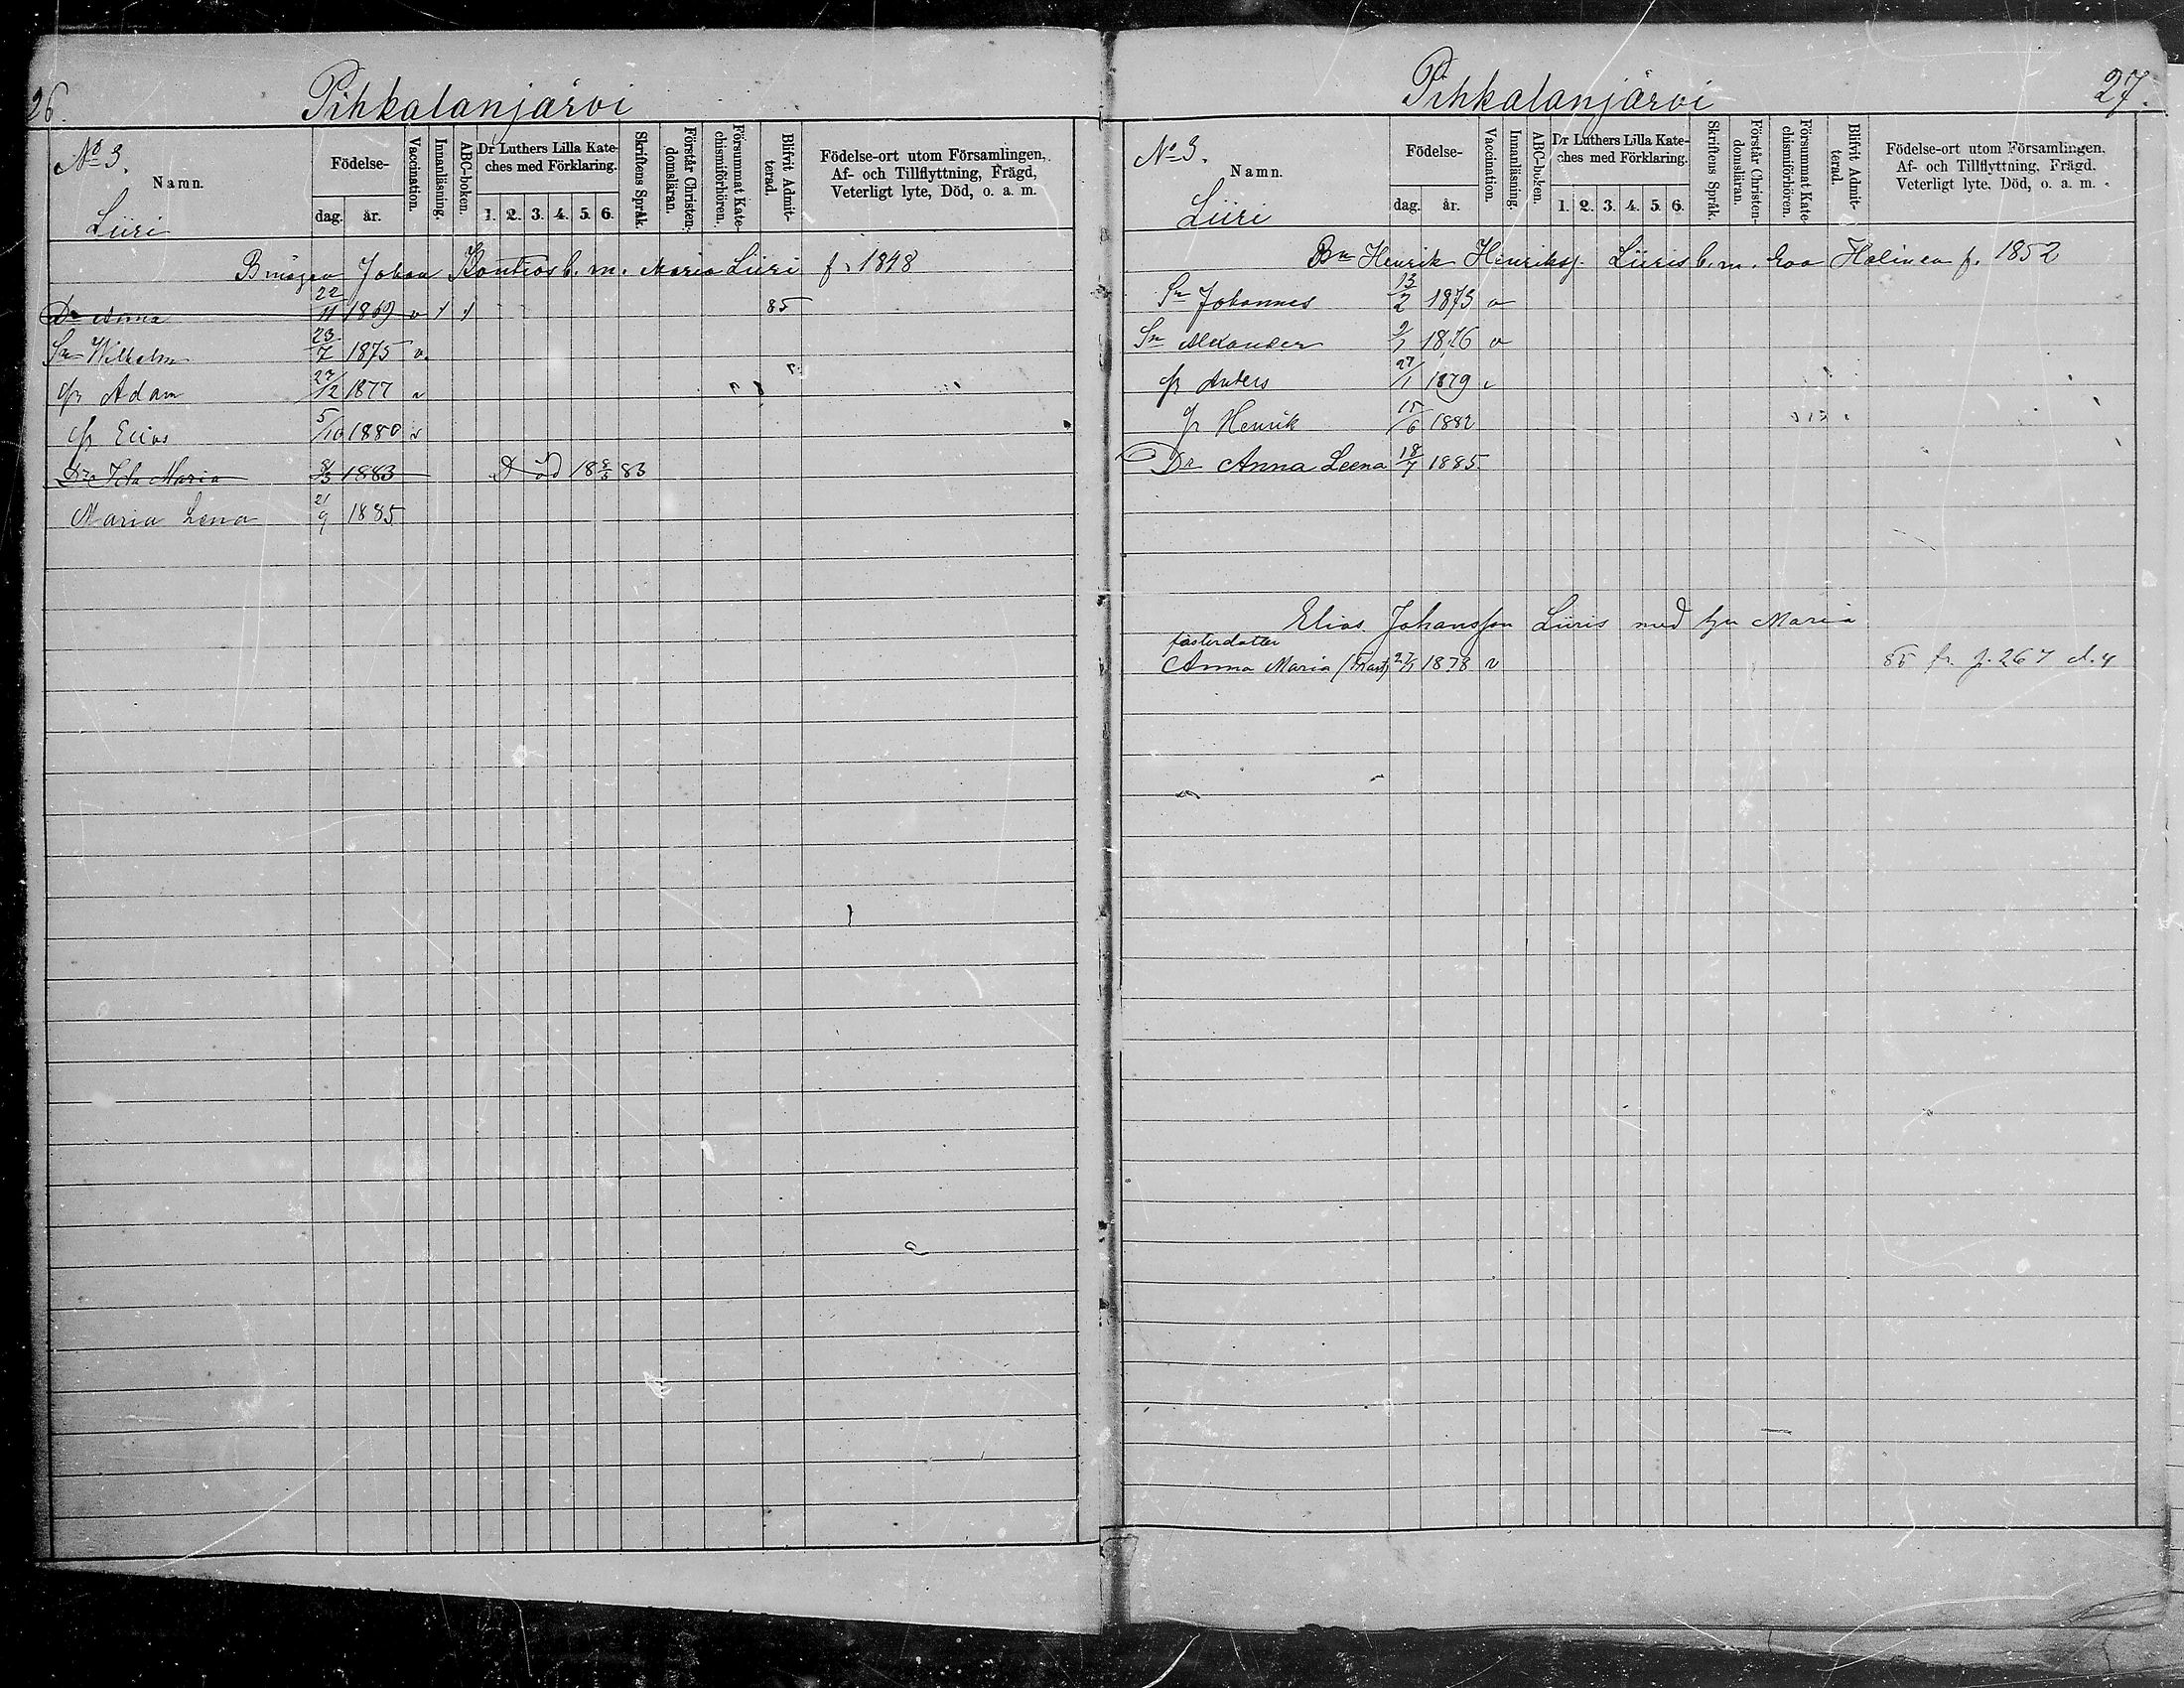 26.
Pihkalanjärvi
No 3.
Namn.
Liiri
Födelse-
dag. år.
Vaccination.
Innanläsning.
ABC-boken.
Dr Luthers Lilla Kate-
ches med Förklaring.
1. 2. 3. 4. 5. 6.
Skriftens Språk.
Förstår Christen-
domsläran.
Försummat Kate-
chismiförhören.
Blifvit Admit-
terad.
Födelse-ort utom Församlingen,
Af- och Tillflyttning, Frägd,
Veterligt lyte, Död, o. a. m.
Bmågen Johan Kontios b. m. Maria Liiri f. 1848
Dr Anna 22/11 1869 v 1 1 85
Sn Wilhelm 23/7 1875 v.
Adam 27/12 1877 v
Elias 5/10 1880 v
Dr Ida Maria 8/3 1883 Död 18 8/3 83
Maria Lena 21/9 1885
Pihkalanjärvi
27.
No 3.
Namn.
Liiri
Födelse-
dag. år.
Vaccination.
Innanläsning.
ABC-boken.
Dr Luthers Lilla Kate-
ches med Förklaring.
1. 2. 3. 4. 5. 6.
Skriftens Språk.
Förstår Christen-
domsläran.
Försummat Kate-
chismiförhören.
Blifvit Admit-
terad.
Födelse-ort utom Församlingen,
Af- och Tillflyttning, Frägd,
Veterligt lyte, Död, o. a. m.
Bn Henrik Henrikss. Liiris b. m. Eva Halinen f. 1852
Sn Johannes 13/2 1873 v
Sn Alexander 2/1 1876 v
Anders 27/1 1879 v
Henrik 15/6 1882
Dr Anna Leena 18/7 1885
Elias Johansson Liiris med hu Maria
fosterdotter
Anna Maria 27/1 1878 v 85 fr. p. 267 d. 4